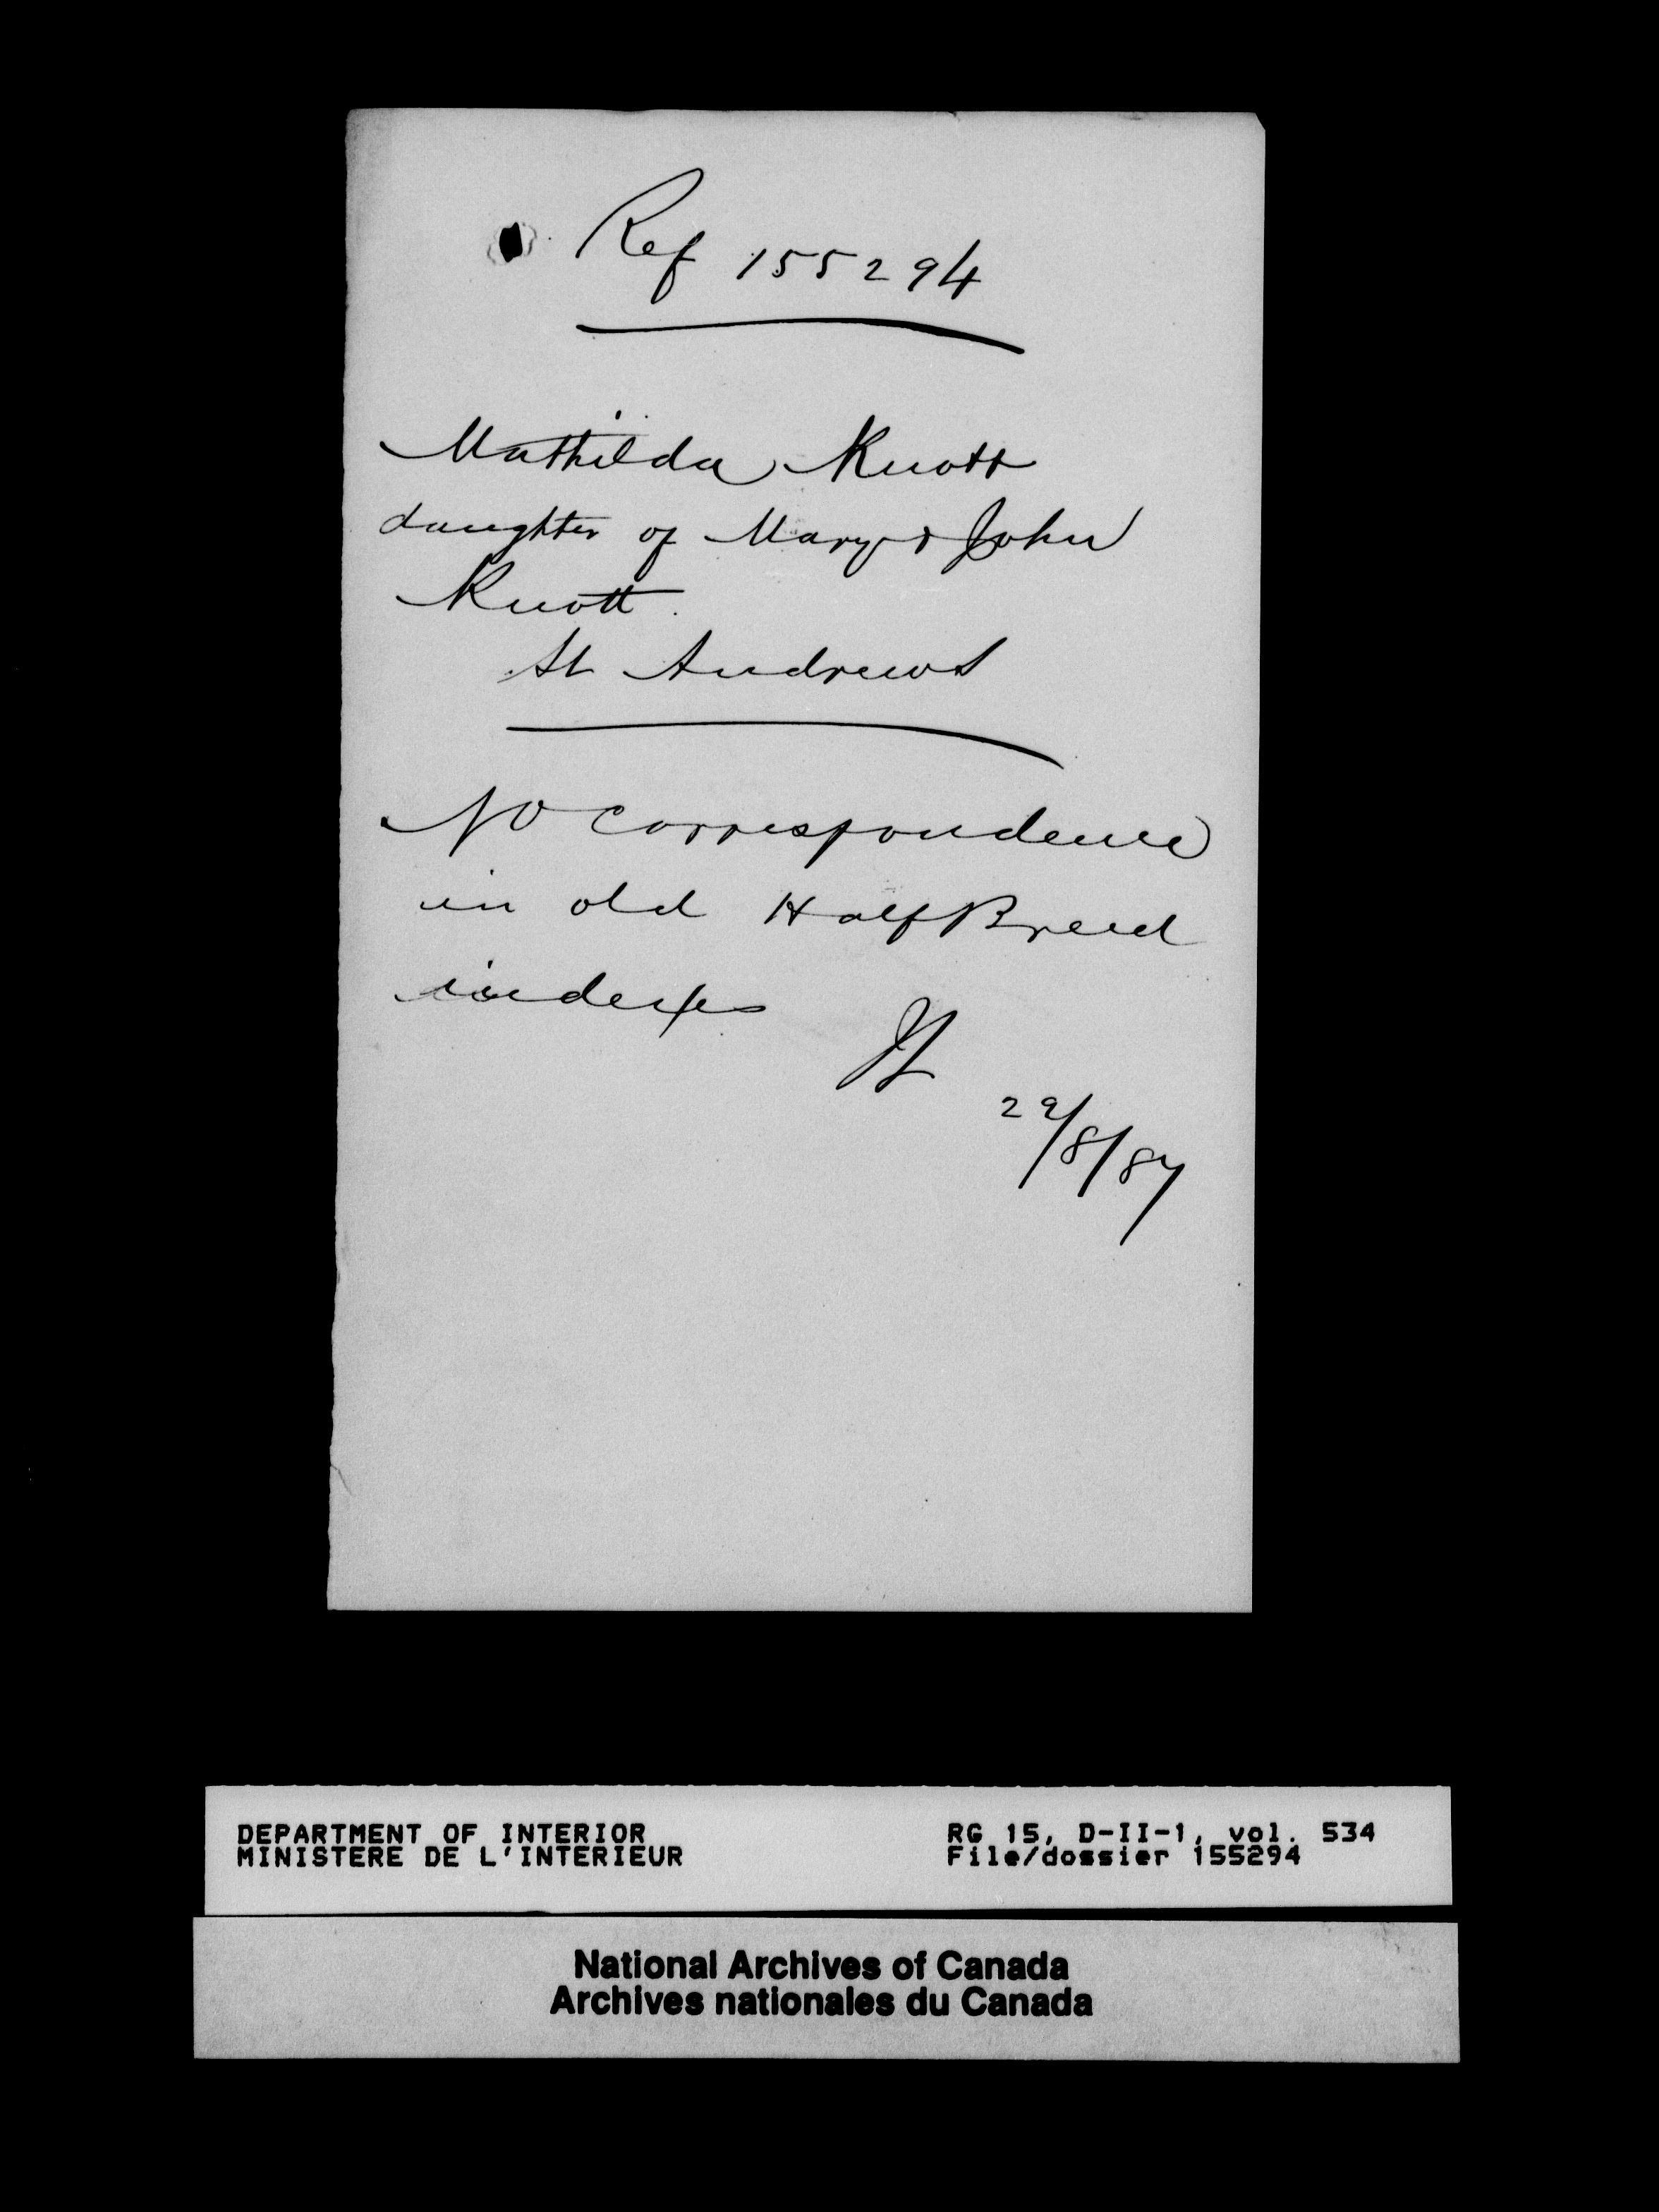 Ref 155294
Mathilda Knott
daughter of Mary & John
Knott.
St Andrews
No correspondence
in old Half Breed
indexes
29/8/87
DEPARTMENT OF INTERIOR
MINISTERE DE L'INTERIEUR
RG 15, D-II-1, vol. 534
File/dossier 155294
National Archives of Canada
Archives nationales du Canada